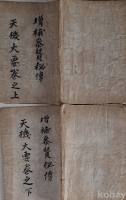 增補參贊秘傳
天機大要卷之上
增補參贊秘傳
天機大要卷之下
kobay